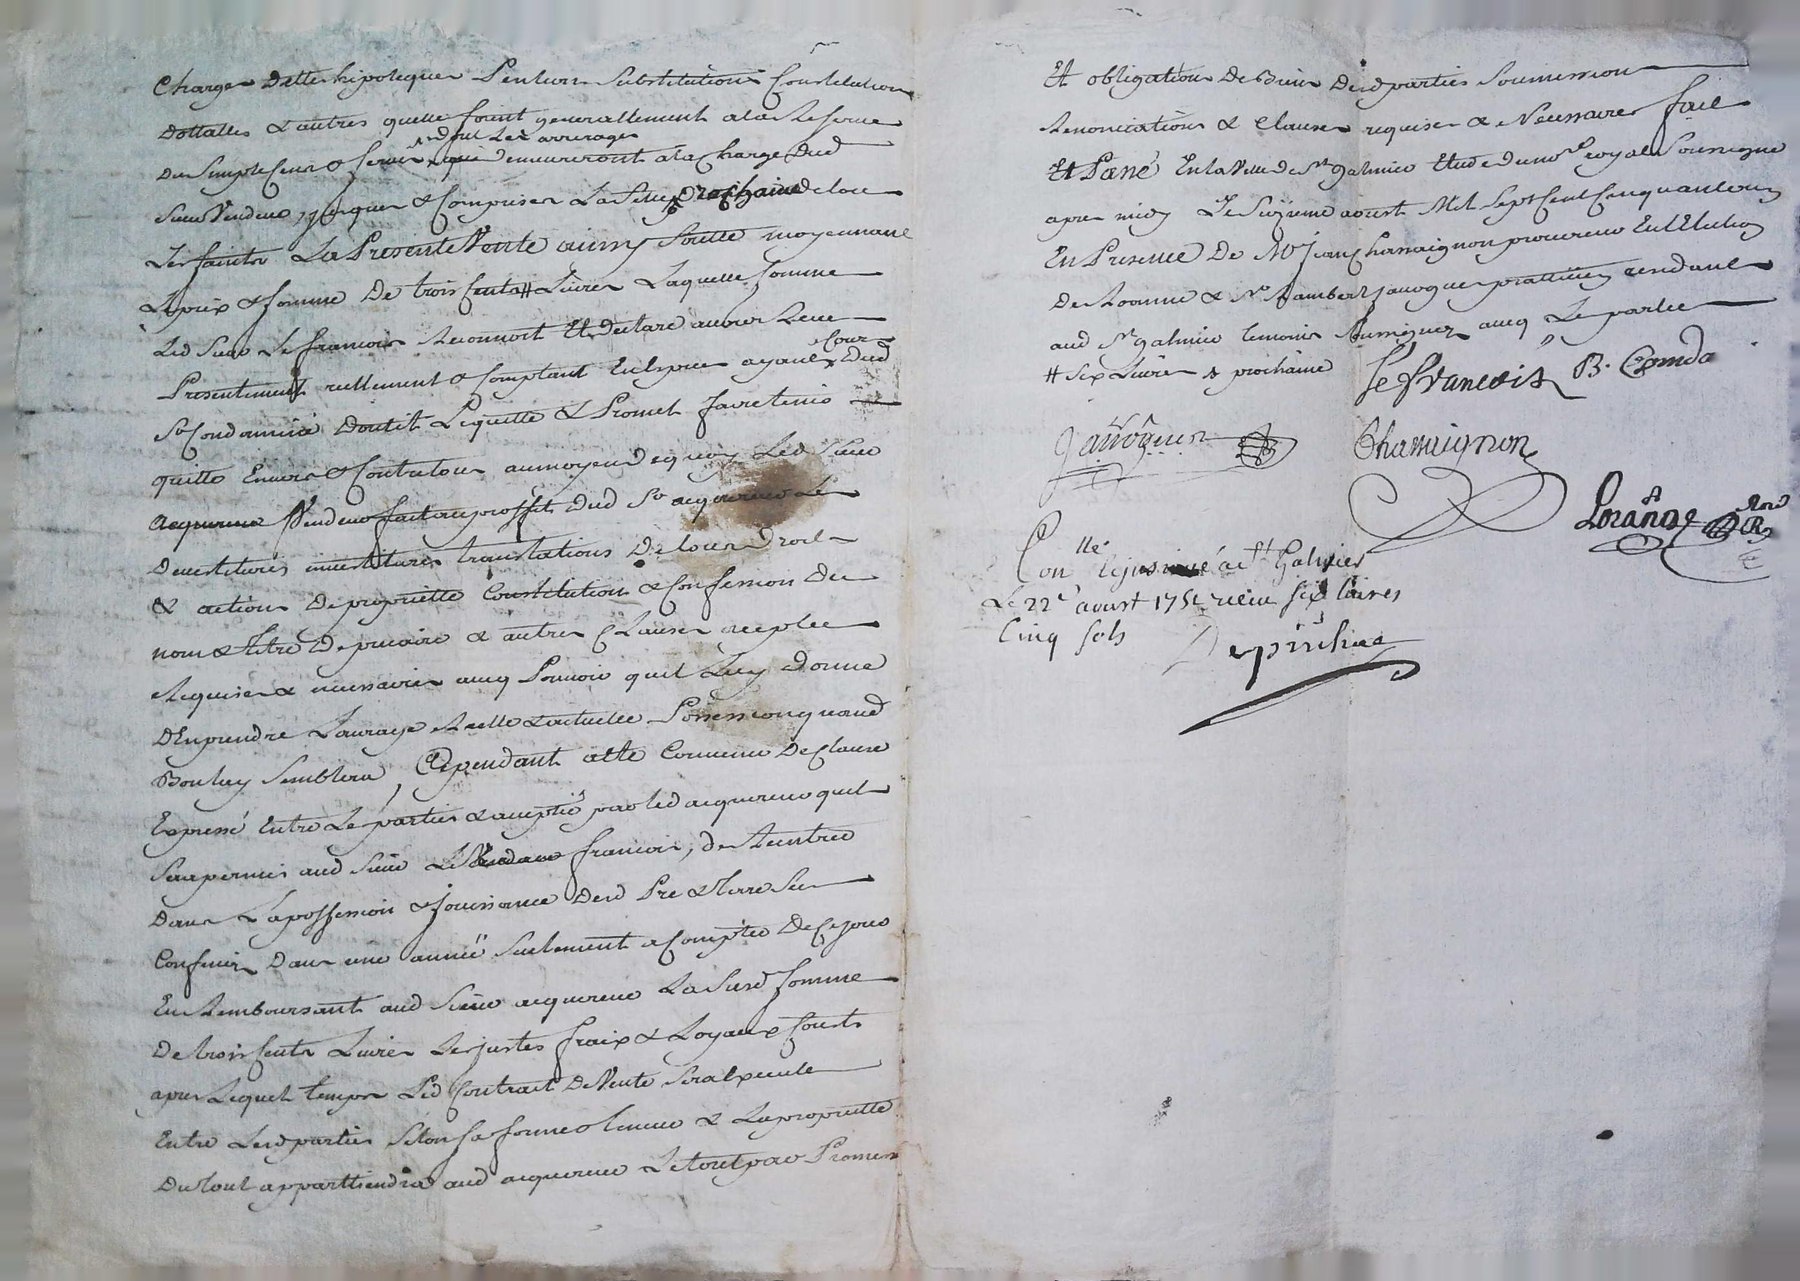 charges dettes hipoteques pention substitutions constitution
dottalles & autres quelle soint generallement ala reserve
dont les arrerages
du simple cens & servis qui demeureront ala charge dud
sieur vendeur, jusques & compriser la fette prochaine de tous
les saints La Presente Vente ainsy faitte moyennant
le prix & somme de trois cents # livres laquelle somme
led sieur lefrancois reconnoit et declare avoir receu
Presentement reellement & comptant en especes ayant cour dud
sr Condamine dontil lequitte & Promet faire tenir
quitte envers & contre tous aumoyen dequoy led sieur
acquereur vendeur fait au proffit dud sr acquereur les
devestitures investitures translations de tous droits
& actions de proprietté constitution & confession de
nom & titre de precaire & autres clauses acceptée
requises & necessaires avecq pouvoir quil luy donne
den prendre la vraye reelle & actuelle possession quand
bon luy semblera, Cependant atté convenu de clause
expresse entre les parties & accepté par led acquereur quil
sera permis aud sieur Le françois, de rentrer
dans la possession & jouissance desd pré & terre sus
confinés dans une année seulement a compter de ce jour
en remboursant aud sieur acquereur la susd somme
de trois cents livres les justes fraix & loyaux couts
apres lequel temps led contrait de vente sera executé
entre lesd parties selon sa forme & teneur & la proprietté
du tout apparttiendra aud acquereur le tout par Promesse
Et obligations de biens desd parties soumissions
renonciations & clauses requises & necessaires fait
Et Passé en la ville de St galmier etude du nore royal soussigné
apres midy le sixieme aoust mil sept cent cinquante un
En Presence de Me jean chassaignon procureur en l'election
de roanne & sr rambert javogues pratticien rendant
aud St galmier temoins soussignez avecq les parties
# six livres & prochaine
Le françois
B. Comda
Javogues
Chassaignon
Lorange
Nore R
Conlle & insinué a St Galmier
Le 22e aoust 1751 receu six livres
cinq sols